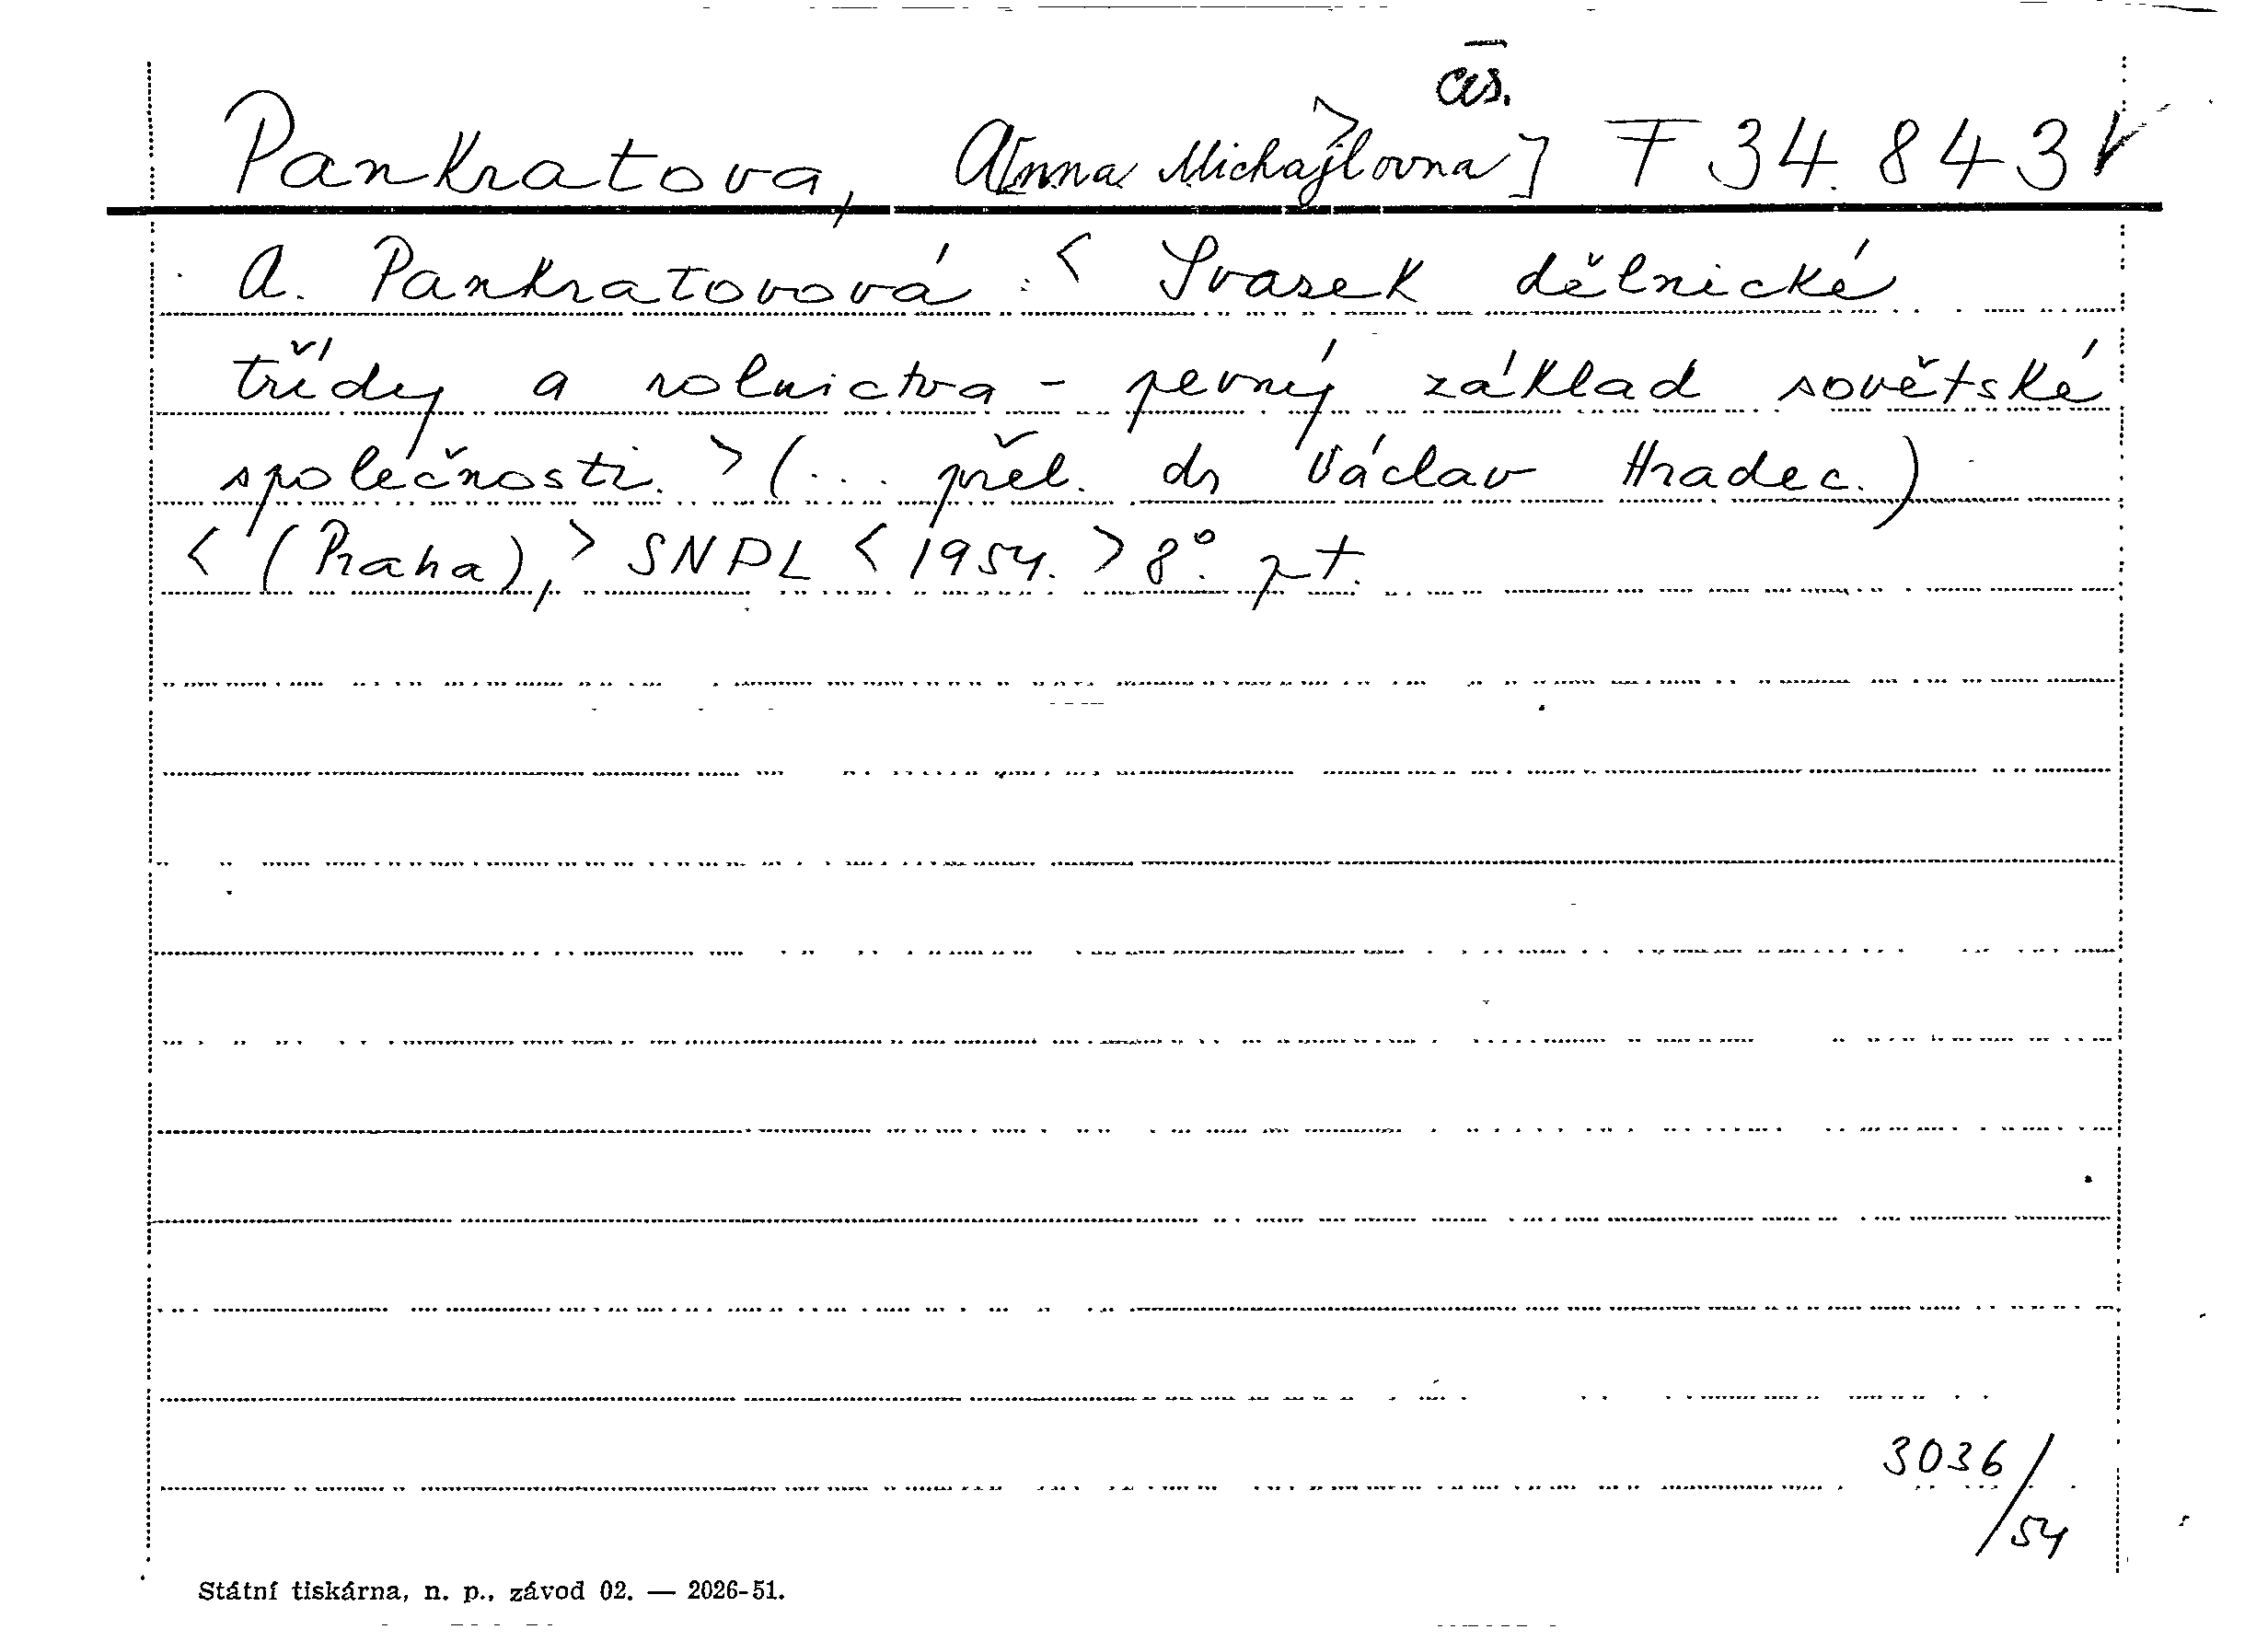 čes.
Pankratova, A[nna Michajlovna] > F 34.843 V
A. Pankratovová : < Svazek dělnické
třídy a rolnictva - pevný základ sovětské
společnosti. > (... přel. dr Václav Hradec.)
< (Praha), > SNPL < 1954. > 8°. pt.
3036/54
Státní tiskárna, n. p., závod 02. — 2026-51.